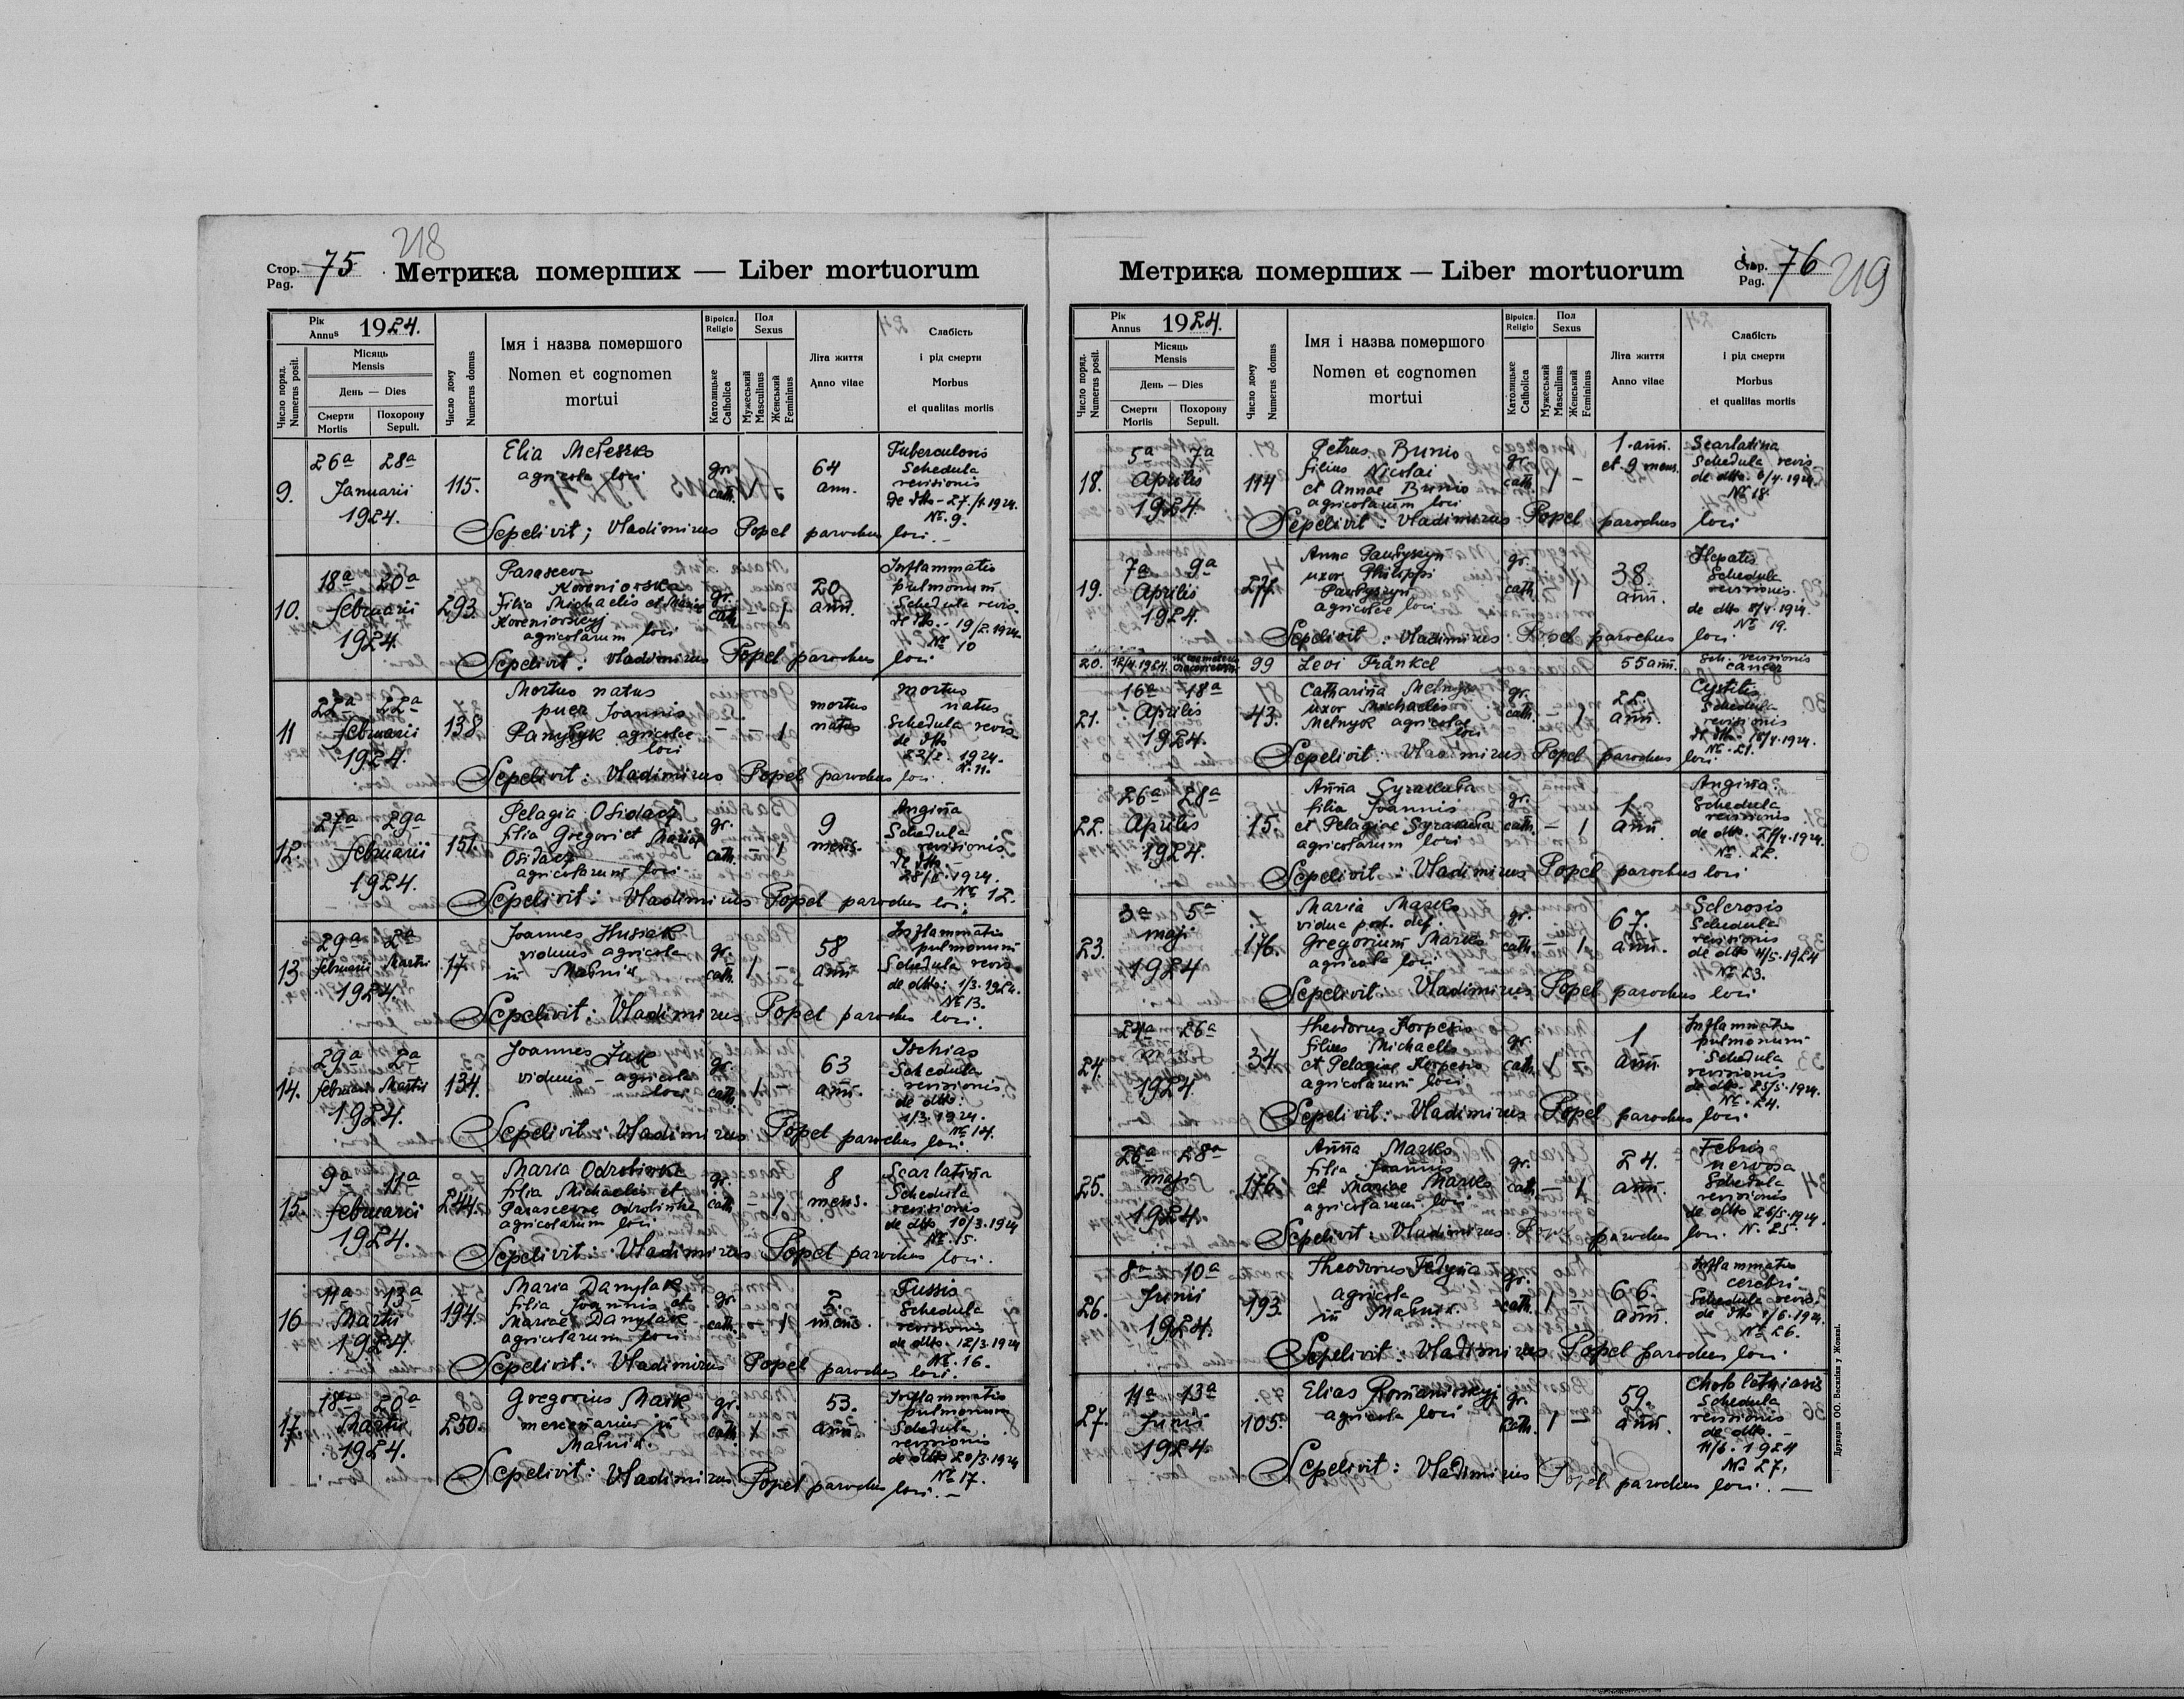 218
Стор. 75
Pag.
Метрика померших — Liber mortuorum
Рік
Annus 1924.
Місяць
Mensis
День — Dies
Смерти
Mortis
Похорону
Sepult.
Число поряд.
Numerus posit.
Число дому
Numerus domus
Імя і назва помершого
Nomen et cognomen
mortui
Віроісп.
Religio
Католицьке
Catholica
Пол
Sexus
Мужеський
Masculinus
Женський
Femininus
Літа життя
Anno vitae
Слабість
і рід смерти
Morbus
et qualitas mortis
9. 26a 28a Januarii 1924. 115.
Elia Meleszko
agricola loci
gr. cath. 1 –
64 ann.
Tuberculosis
Schedula
revisionis
de dtto - 27./1.1924.
№. 9.
Sepelivit; Vladimirus Popel parochus loci. –
10. 18a 20a februarii 1924. 293.
Parasceva
Koreniowska
filia Michaelis et Mariae
Koreniowskyj
agricolarum loci
gr. cath. – 1
20 ann.
Inflammatio
pulmonum
Schedula revis.
de dtto. - 19/2.1924.
№ 10
Sepelivit: Vladimirus Popel parochus loci
11 22a 22a februarii 1924. 138.
Mortus natus
puer Joannis
agricolae
loci
– – 1
mortus
natus
mortus
natus
Schedula revis
de dtto
22/2. 1924.
N. 11.
Sepelivit: Vladimirus Popel parochus loci.
12. 27a 29a februarii 1924. 151.
Pelagia Osidacz
filia Gregori et Mariae
Osidacz
agricolarum loci
gr. cath. – 1
9 mens.
Angina
Schedula
revisionis
de dtto –
28/2. 1924.
№ 12.
Sepelivit: Vladimirus Popel parochus loci
13 29a 2a februarii Martii 1924. 17
Joannes Husiak
viduus agricola
in
gr. cath. 1 –
58 ann
Inflammatio
pulmonum
Schedula revis
de dtto: 1/3.1924.
№ 13.
Sepelivit: Vladimirus Popel parochus loci.
14. 29a 2a februarii Martii 1924. 134.
Joannes Żuk
viduus – agricola
loci
gr. cath. 1 –
63 ann.
Ischias
Schedula
revisionis
de dtto:
1/3. 1924.
№ 14.
Sepelivit: Vladimirus Popel parochus loci.
15. 9a 11a februarii 1924. 244.
Maria Odrobinka
filia Michaelis et
Parascevae
agricolarum loci
gr. cath – 1
8 mens.
Scarlatina
Schedula
revisionis
de dtto 10/3.1924
№ 15.
Sepelivit: Vladimirus Popel parochus loci.
16 11a 13a Martii 1924. 194.
Maria Danylak
filia Joannis et
Mariae Danylak
agricolarum loci
gr. cath. – 1
2. mens.
Tussis
Schedula
revisionis
de dtto. 12/3.1924
№. 16.
Sepelivit: Vladimirus Popel parochus loci.
17. 18a 20a Martii 1924. 250.
Gregorius
mercenarius in
gr. cath. 1 –
53. ann.
Inflammatio
pulmonum
Schedula
revisionis
de dtto 20/3.1924
№ 17.
Sepelivit: Vladimirus Popel parochus loci. –
Метрика померших — Liber mortuorum
Стор. 76
Pag.
219
Рік
Annus 1924.
Місяць
Mensis
День — Dies
Смерти
Mortis
Похорону
Sepult.
Число поряд.
Numerus posit.
Число дому
Numerus domus
Імя і назва помершого
Nomen et cognomen
mortui
Віроісп.
Religio
Католицьке
Catholica
Пол
Sexus
Мужеський
Masculinus
Женський
Femininus
Літа життя
Anno vitae
Слабість
і рід смерти
Morbus
et qualitas mortis
18. 5a 7a Aprilis 1924 114
Petrus Bunio
filius Nicolai
et Annae Bunio
agricolarum loci
gr. cath. 1 –
1. ann.
et 9 mens.
Scarlatina
Schedula revis.
de dtto. 6/4.1924.
№ 18.
Sepelivit: Vladimirus Popel parochus loci
19. 7a 9a Aprilis 1924.
Anna
uxor Philippi
agricolae loci
gr. cath. 1
38. ann.
Hepatis
Schedula
revisionis
de dtto 8/4.1924.
№ 19.
Sepelivit: Vladimirus Popel parochus loci
20. 12/4.1924. 99 Levi Fränkel 55 ann. Sch. revisionis
cancer
21. 16a 18a Aprilis 1924. 43.
Catharina Melnyk
uxor Michaelis
Melnyk agricolae
loci
gr. cath. – 1
22. ann.
Cystitis
Schedula
revisionis
de dtto. 18/4.1924.
№. 21.
Sepelivit: Vladimirus Popel parochus loci
22. 26a 28a Aprilis 1924. 15.
Anna
filia Joannis
et Pelagiae
agricolarum loci
gr. cath. – 1
1 ann.
Angina.
Schedula
revisionis
de dtto. 27/4.1924.
№. 22.
Sepelivit: Vladimirus Popel parochus loci
23. 3a 5a maji 1924 176.
Maria Masko
vidua post. def.
Gregorium Masko
agricola loci
gr. cath – 1
67. ann.
Sclerosis
Schedula
revisionis
de dtto 4/5.1924
№ 23.
Sepelivit: Vladimirus Popel parochus loci
24. 24a 26a 1924. 34.
Theodorus Korpesio
filius Michaelis
et Pelagiae Korpesio
agricolarum loci
gr. cath. 1 –
1 ann.
Inflammatio
pulmonum
Schedula
revisionis
de dtto. 25/5.1924.
№. 24.
Sepelivit: Vladimirus Popel parochus loci
25. 26a 28a maji 1924. 176.
Anna Masko
filia Joannis
et Mariae Masko
agricolarum loci
gr. cath – 1
24. ann.
Febris
nervosa
Schedula
revisionis
de dtto 26/5.1924.
N. 25.
Sepelivit: Vladimirus Popel parochus loci.
26. 8a 10a Junii 1924. 193.
Theodorus Fedyna
agricola
in
gr. cath. 1 –
66. ann.
Inflammatio
cerebri
Schedula revis.
de dtto 9/6.1924.
№ 26.
Sepelivit: Vladimirus Popel parochus loci.
27. 11a 13a Junii 1924. 105.
Elias Romaniwskyj
agricola loci
gr. cath. 1 –
59. ann.
Schedula
revisionis
de dtto. –
11/6. 1924
№ 27.
Sepelivit: Vladimirus Popel parochus loci. —
Друкарня ОО. Василіян у Жовкві.